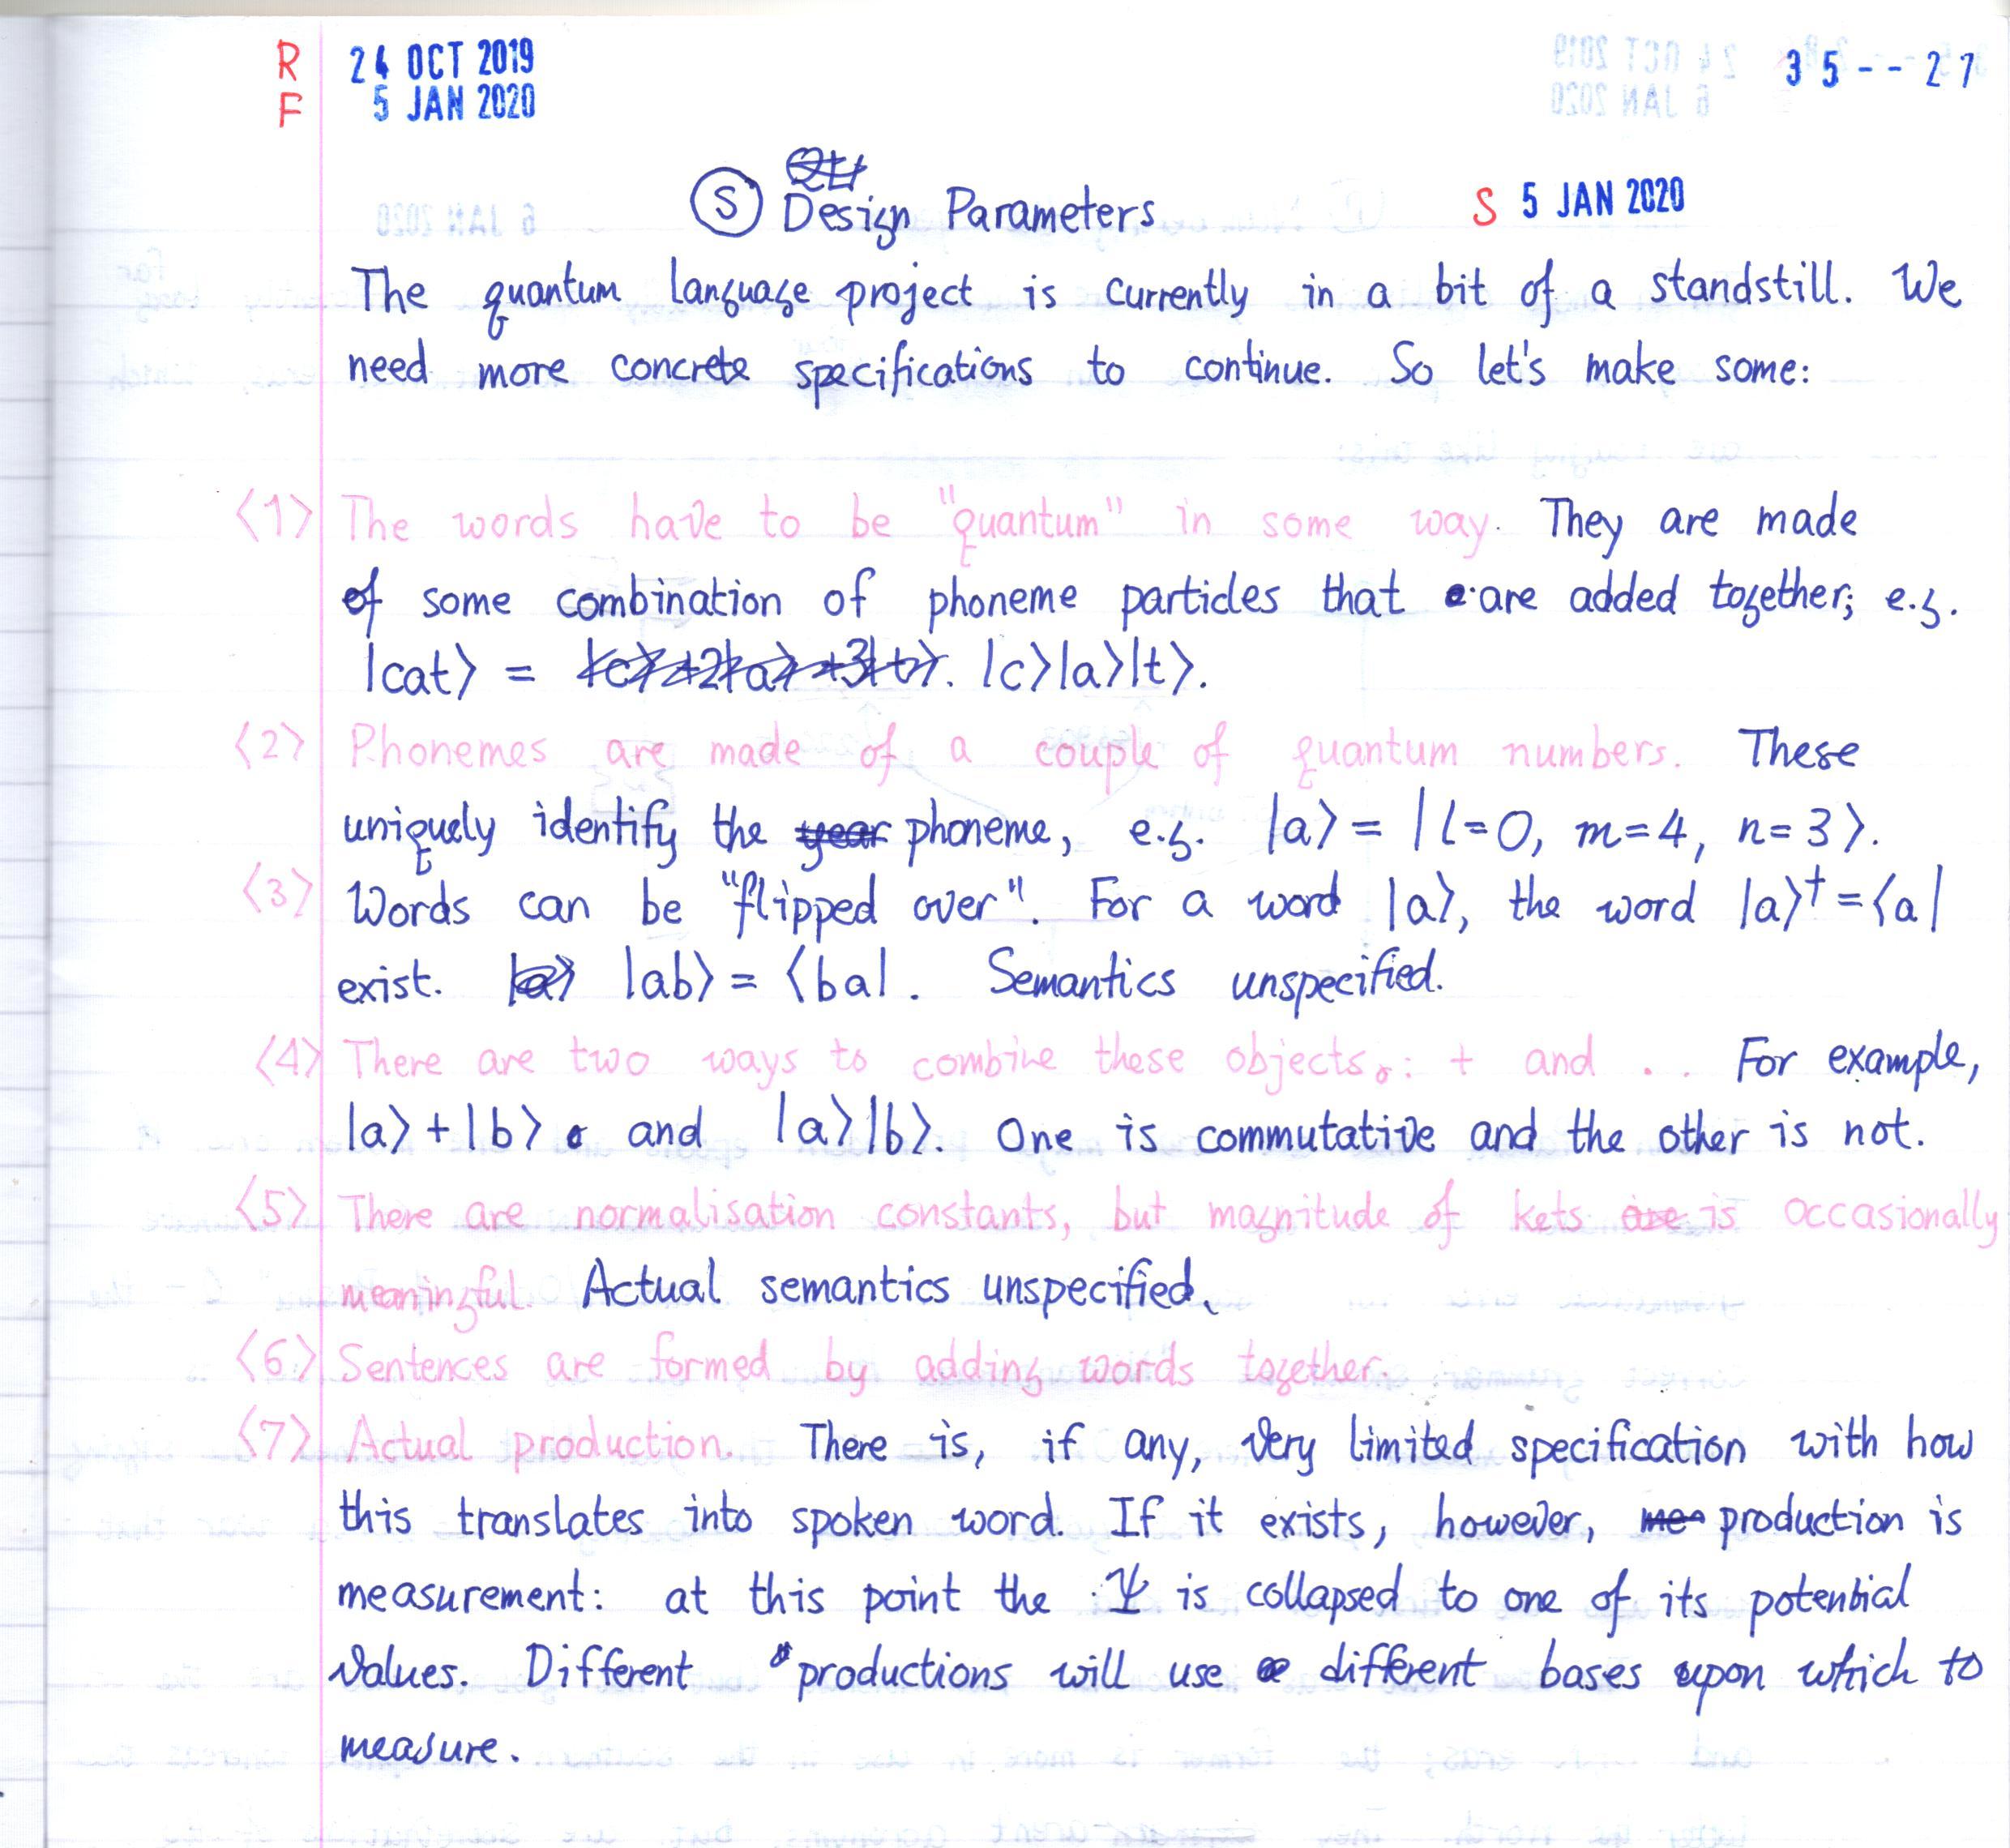 R 24 OCT 2019 35--27
F 5 JAN 2020
Ⓢ Design Parameters S 5 JAN 2020
The quantum language project is currently in a bit of a standstill. We
need more concrete specifications to continue. So let's make some:
⟨1⟩ The words have to be "quantum" in some way. They are made
of some combination of phoneme particles that are added together; e.g.
|cat⟩ = |c⟩+2|a⟩+3|t⟩. |c⟩|a⟩|t⟩.
⟨2⟩ Phonemes are made of a couple of quantum numbers. These
uniquely identify the year phoneme, e.g. |a⟩ = |l=0, m=4, n=3⟩.
⟨3⟩ Words can be "flipped over". For a word |a⟩, the word |a⟩† = ⟨a|
exist. |a⟩ |ab⟩ = ⟨ba|. Semantics unspecified.
⟨4⟩ There are two ways to combine these objects: + and . . For example,
|a⟩+|b⟩ and |a⟩|b⟩. One is commutative and the other is not.
⟨5⟩ There are normalisation constants, but magnitude of kets are is occasionally
meaningful. Actual semantics unspecified.
⟨6⟩ Sentences are formed by adding words together.
⟨7⟩ Actual production. There is, if any, very limited specification with how
this translates into spoken word. If it exists, however, me production is
measurement: at this point the Ψ is collapsed to one of its potential
values. Different productions will use different bases upon which to
measure.